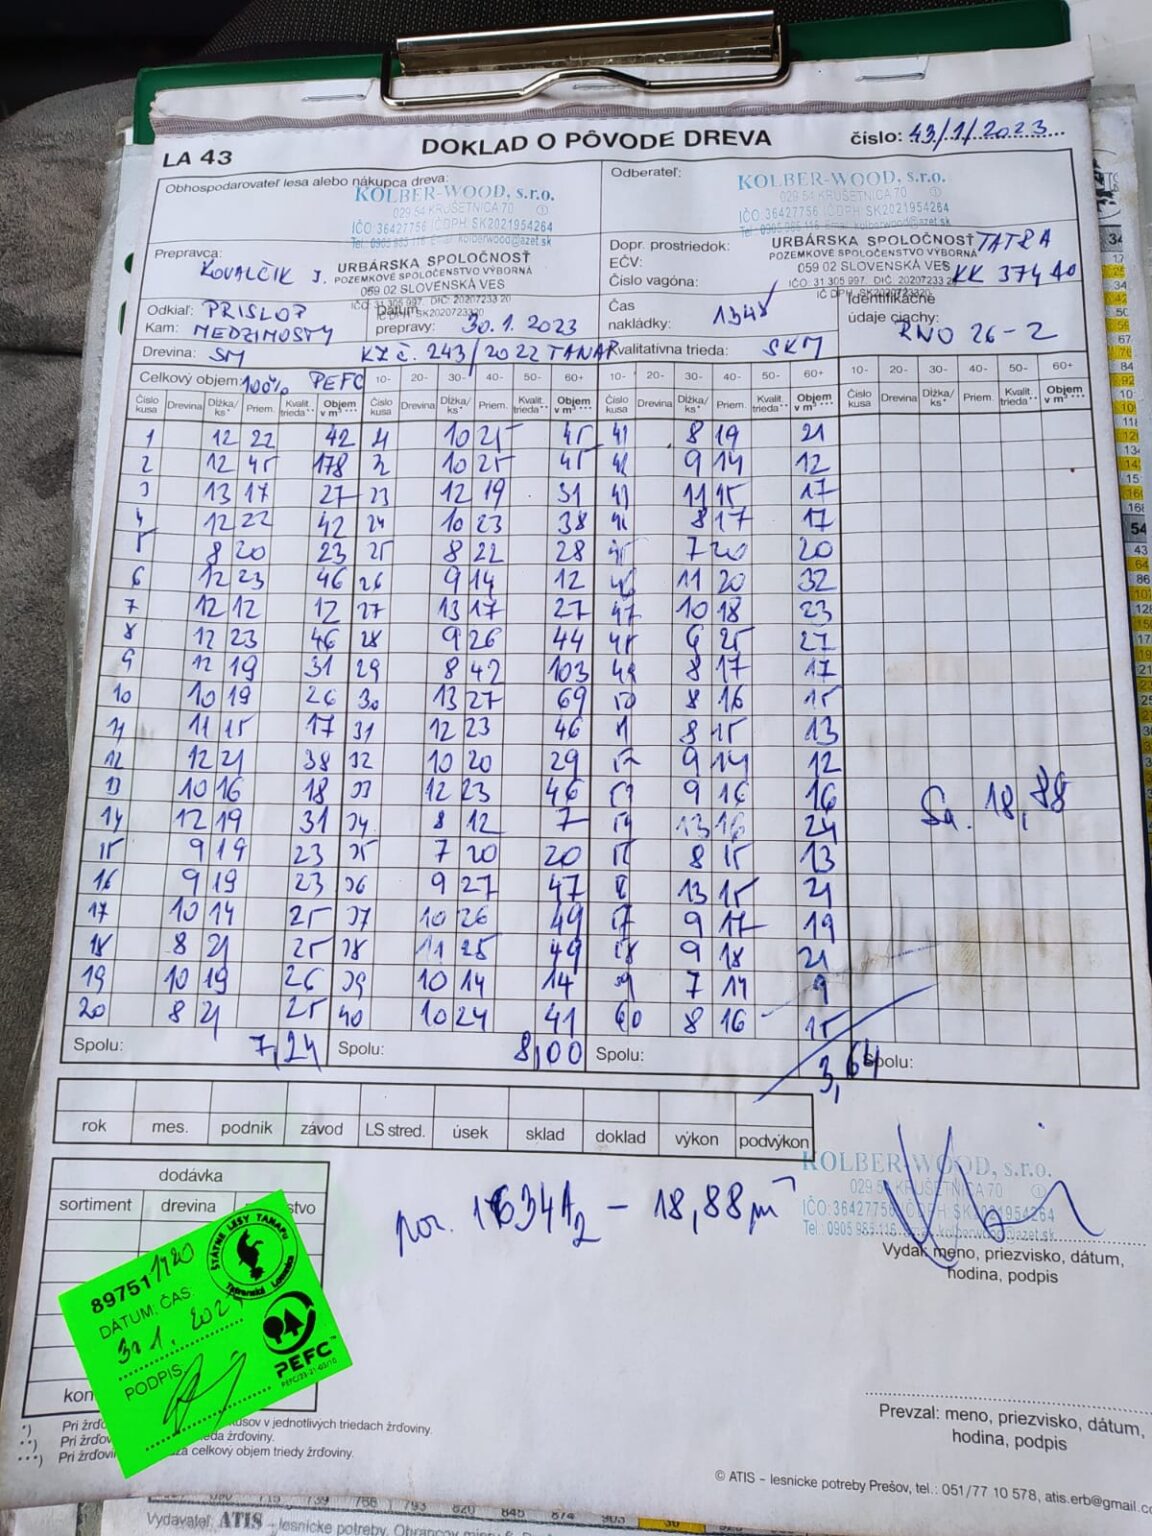 LA 43
DOKLAD O PÔVODE DREVA
číslo: 43/1/2023
Obhospodarovateľ lesa alebo nákupca dreva:
KOLBER-WOOD, s.r.o.
029 54 KRUŠETNICA 70
IČO: 36427756 IČ DPH: SK2021954264
Tel.: 0905 985 116 Email: kolberwood@azet.sk
Odberateľ:
KOLBER-WOOD, s.r.o.
029 54 KRUŠETNICA 70
IČO: 36427756 IČ DPH: SK2021954264
Prepravca: KOVALČÍK J.
URBÁRSKA SPOLOČNOSŤ
POZEMKOVÉ SPOLOČENSTVO VÝBORNÁ
059 02 SLOVENSKÁ VES
IČO: 31 305 997, DIČ: 20207233 20
IČ DPH: SK2020723320
Dopr. prostriedok: TATRA
EČV: KK 374 AO
Číslo vagóna:
URBÁRSKA SPOLOČNOSŤ
POZEMKOVÉ SPOLOČENSTVO VÝBORNÁ
059 02 SLOVENSKÁ VES
Odkiaľ: PRISLOP
Kam: MEDZIMOSTY
Dátum prepravy: 30.1.2023
Čas nakládky: 1348
Identifikačné údaje ciachy: RNO 26-2
Drevina: SM
KZ č. 243/2022 TANAP
Kvalitatívna trieda: SKM
Celkový objem: 100% PEFC
10- 20- 30- 40- 50- 60+ 10- 20- 30- 40- 50- 60+ 10- 20- 30- 40- 50- 60+
Číslo kusa Drevina Dĺžka/ks* Priem. Kvalit. trieda** Objem v m³*** Číslo kusa Drevina Dĺžka/ks* Priem. Kvalit. trieda** Objem v m³*** Číslo kusa Drevina Dĺžka/ks* Priem. Kvalit. trieda** Objem v m³*** Číslo kusa Drevina Dĺžka/ks* Priem. Kvalit. trieda** Objem v m³***
1 12 22 42 21 10 25 45 41 8 19 21
2 12 45 178 22 10 25 45 42 9 14 12
3 13 17 27 23 12 19 31 43 11 15 17
4 12 22 42 24 10 23 38 44 8 17 17
5 8 20 23 25 8 22 28 45 7 20 20
6 12 23 46 26 9 14 12 46 11 20 32
7 12 12 12 27 13 17 27 47 10 18 23
8 12 23 46 28 9 26 44 48 6 25 27
9 12 19 31 29 8 42 103 49 8 17 17
10 10 19 26 30 13 27 69 50 8 16 15
11 11 15 17 31 12 23 46 51 8 15 13
12 12 21 38 32 10 20 29 52 9 14 12
13 10 16 18 33 12 23 46 53 9 16 16
14 12 19 31 34 8 12 7 54 13 16 24
15 9 19 23 35 7 20 20 55 8 15 13
16 9 19 23 36 9 27 47 56 13 15 21
17 10 14 25 37 10 26 49 57 9 17 19
18 8 21 25 38 11 25 49 58 9 18 21
19 10 19 26 39 10 14 14 59 7 14 9
20 8 21 25 40 10 24 41 60 8 16 15
Sa. 18,88
Spolu: 7,24 Spolu: 8,00 Spolu: 3,64 Spolu:
rok mes. podnik závod LS stred. úsek sklad doklad výkon podvýkon
dodávka
sortiment drevina
por. 1634A2 – 18,88 m³
KOLBER-WOOD, s.r.o.
029 54 KRUŠETNICA 70
IČO: 36427756 IČ DPH: SK2021954264
Tel.: 0905 985 116
Vydal: meno, priezvisko, dátum,
hodina, podpis
ŠTÁTNE LESY TANAPU
Tatranská Lomnica
89751
DÁTUM: ČAS:
PODPIS:
PEFC™
Prevzal: meno, priezvisko, dátum,
hodina, podpis
© ATIS – lesnícke potreby Prešov, tel.: 051/77 10 578, atis.erb@gmail.c
Vydavateľ: ATIS – lesnícke potreby,